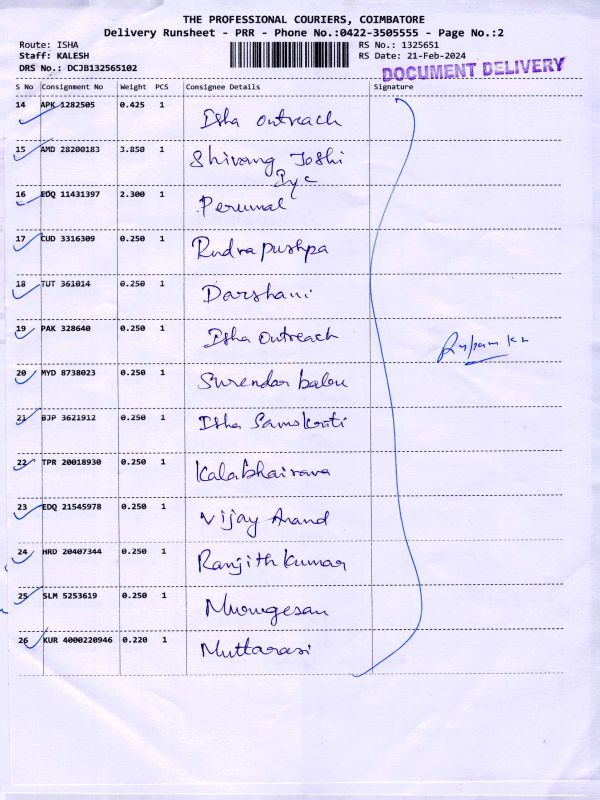 THE PROFESSIONAL COURIERS, COIMBATORE
Delivery Runsheet - PRR - Phone No.:0422-3505555 - Page No.:2
Route: ISHA
Staff: KALESH
DRS No.: DCJB132565102
RS No.: 1325651
RS Date: 21-Feb-2024
DOCUMENT DELIVERY
S No Consignment No Weight PCS Consignee Details Signature
14 APK 1282505 0.425 1 Isha outreach
15 AMD 28200183 3.850 1 Shivang Joshi
Iyc
16 EDQ 11431397 2.300 1 Perumal
17 CUD 3316309 0.250 1 Rudrapushpa
18 TUT 361014 0.250 1 Darshani
19 PAK 328640 0.250 1 Isha Outreach
20 MYD 8738023 0.250 1 Surendar babu
21 BJP 3621912 0.250 1 Isha Samskriti
22 TPR 20018930 0.250 1 Kalabhairava
23 EDQ 21545978 0.250 1 Vijay Anand
24 HRD 20407344 0.250 1 Ranjith Kumar
25 SLM 5253619 0.250 1 Murugesan
26 KUR 4000220946 0.220 1 Muttarasi